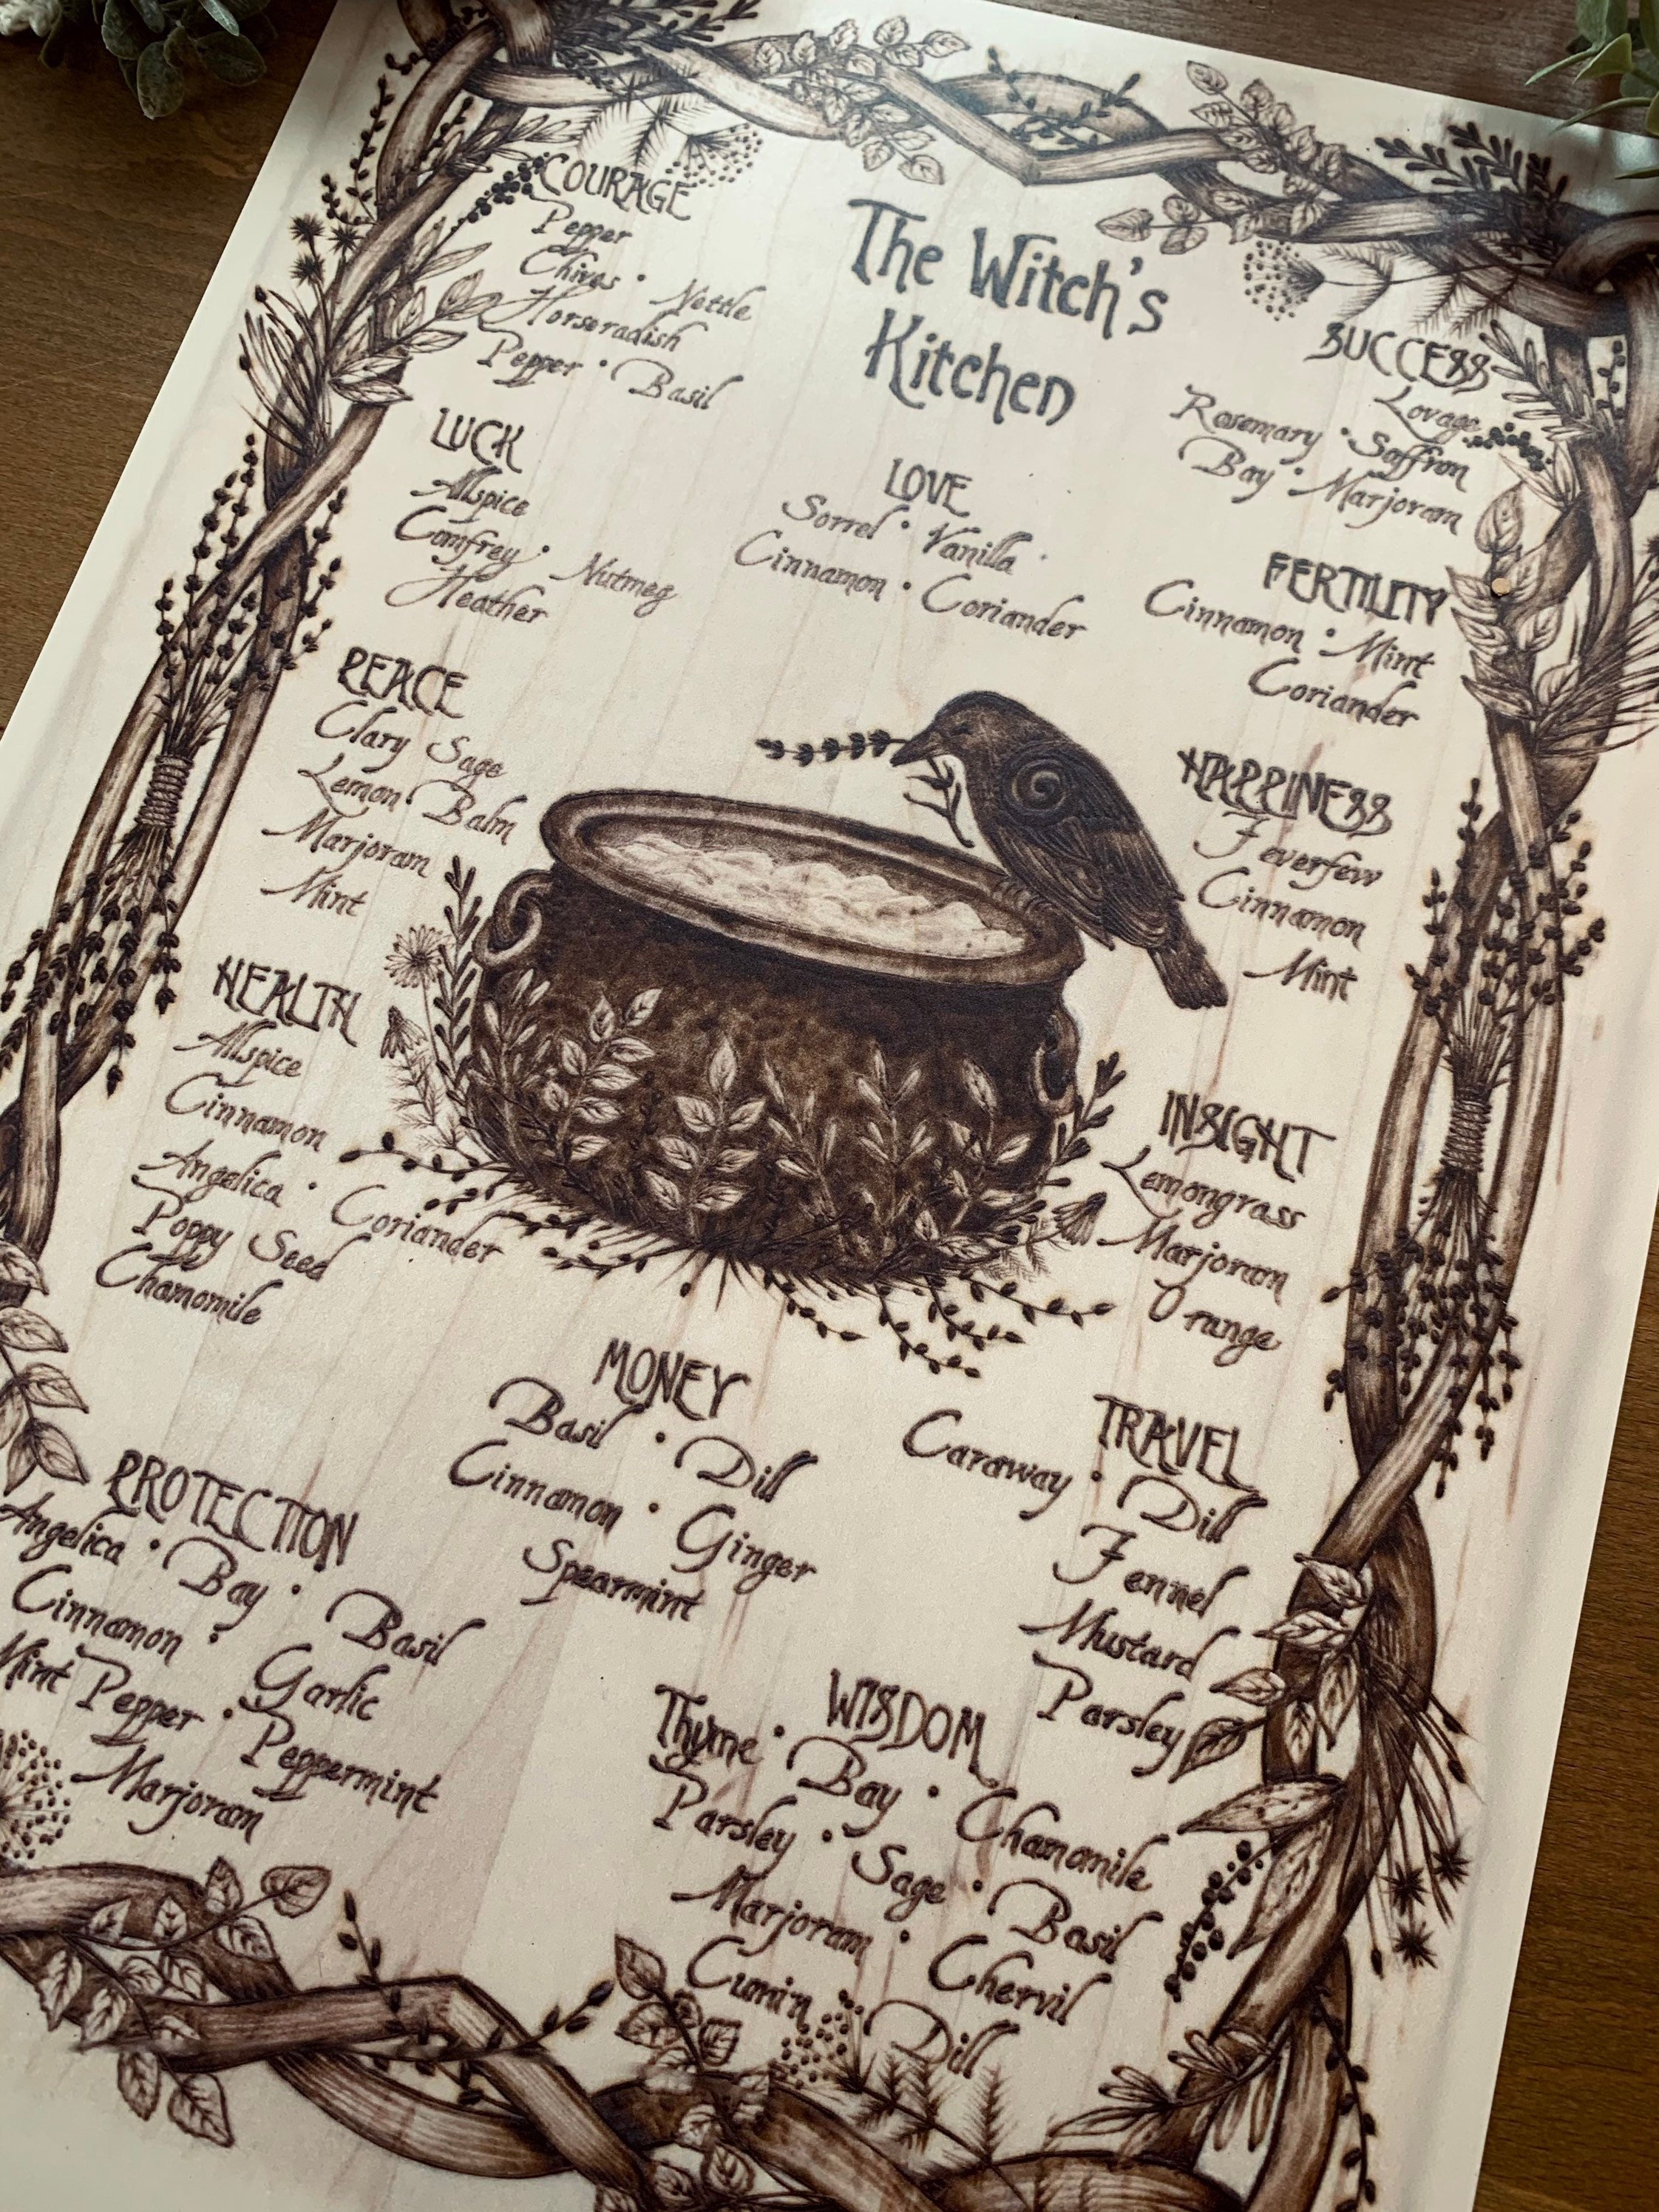 The Witch's
Kitchen
COURAGE
Pepper
Chives • Nettle
Horseradish
Pepper • Basil
LUCK
Allspice
Comfrey • Nutmeg
Heather
PEACE
Clary Sage
Lemon Balm
Marjoram
Mint
HEALTH
Allspice
Cinnamon
Angelica • Coriander
Poppy Seed
Chamomile
PROTECTION
Angelica • Bay • Basil
Cinnamon • Garlic
Mint Pepper • Peppermint
Marjoram
LOVE
Sorrel • Vanilla
Cinnamon • Coriander
MONEY
Basil • Dill
Cinnamon • Ginger
Spearmint
WISDOM
Thyme • Bay • Chamomile
Parsley • Sage • Basil
Marjoram • Chervil
Cumin Dill
SUCCESS
Lovage
Rosemary • Saffron
Bay • Marjoram
FERTILITY
Cinnamon • Mint
Coriander
HAPPINESS
Feverfew
Cinnamon
Mint
INSIGHT
Lemongrass
Marjoram
Orange
TRAVEL
Caraway • Dill
Fennel
Mustard
Parsley